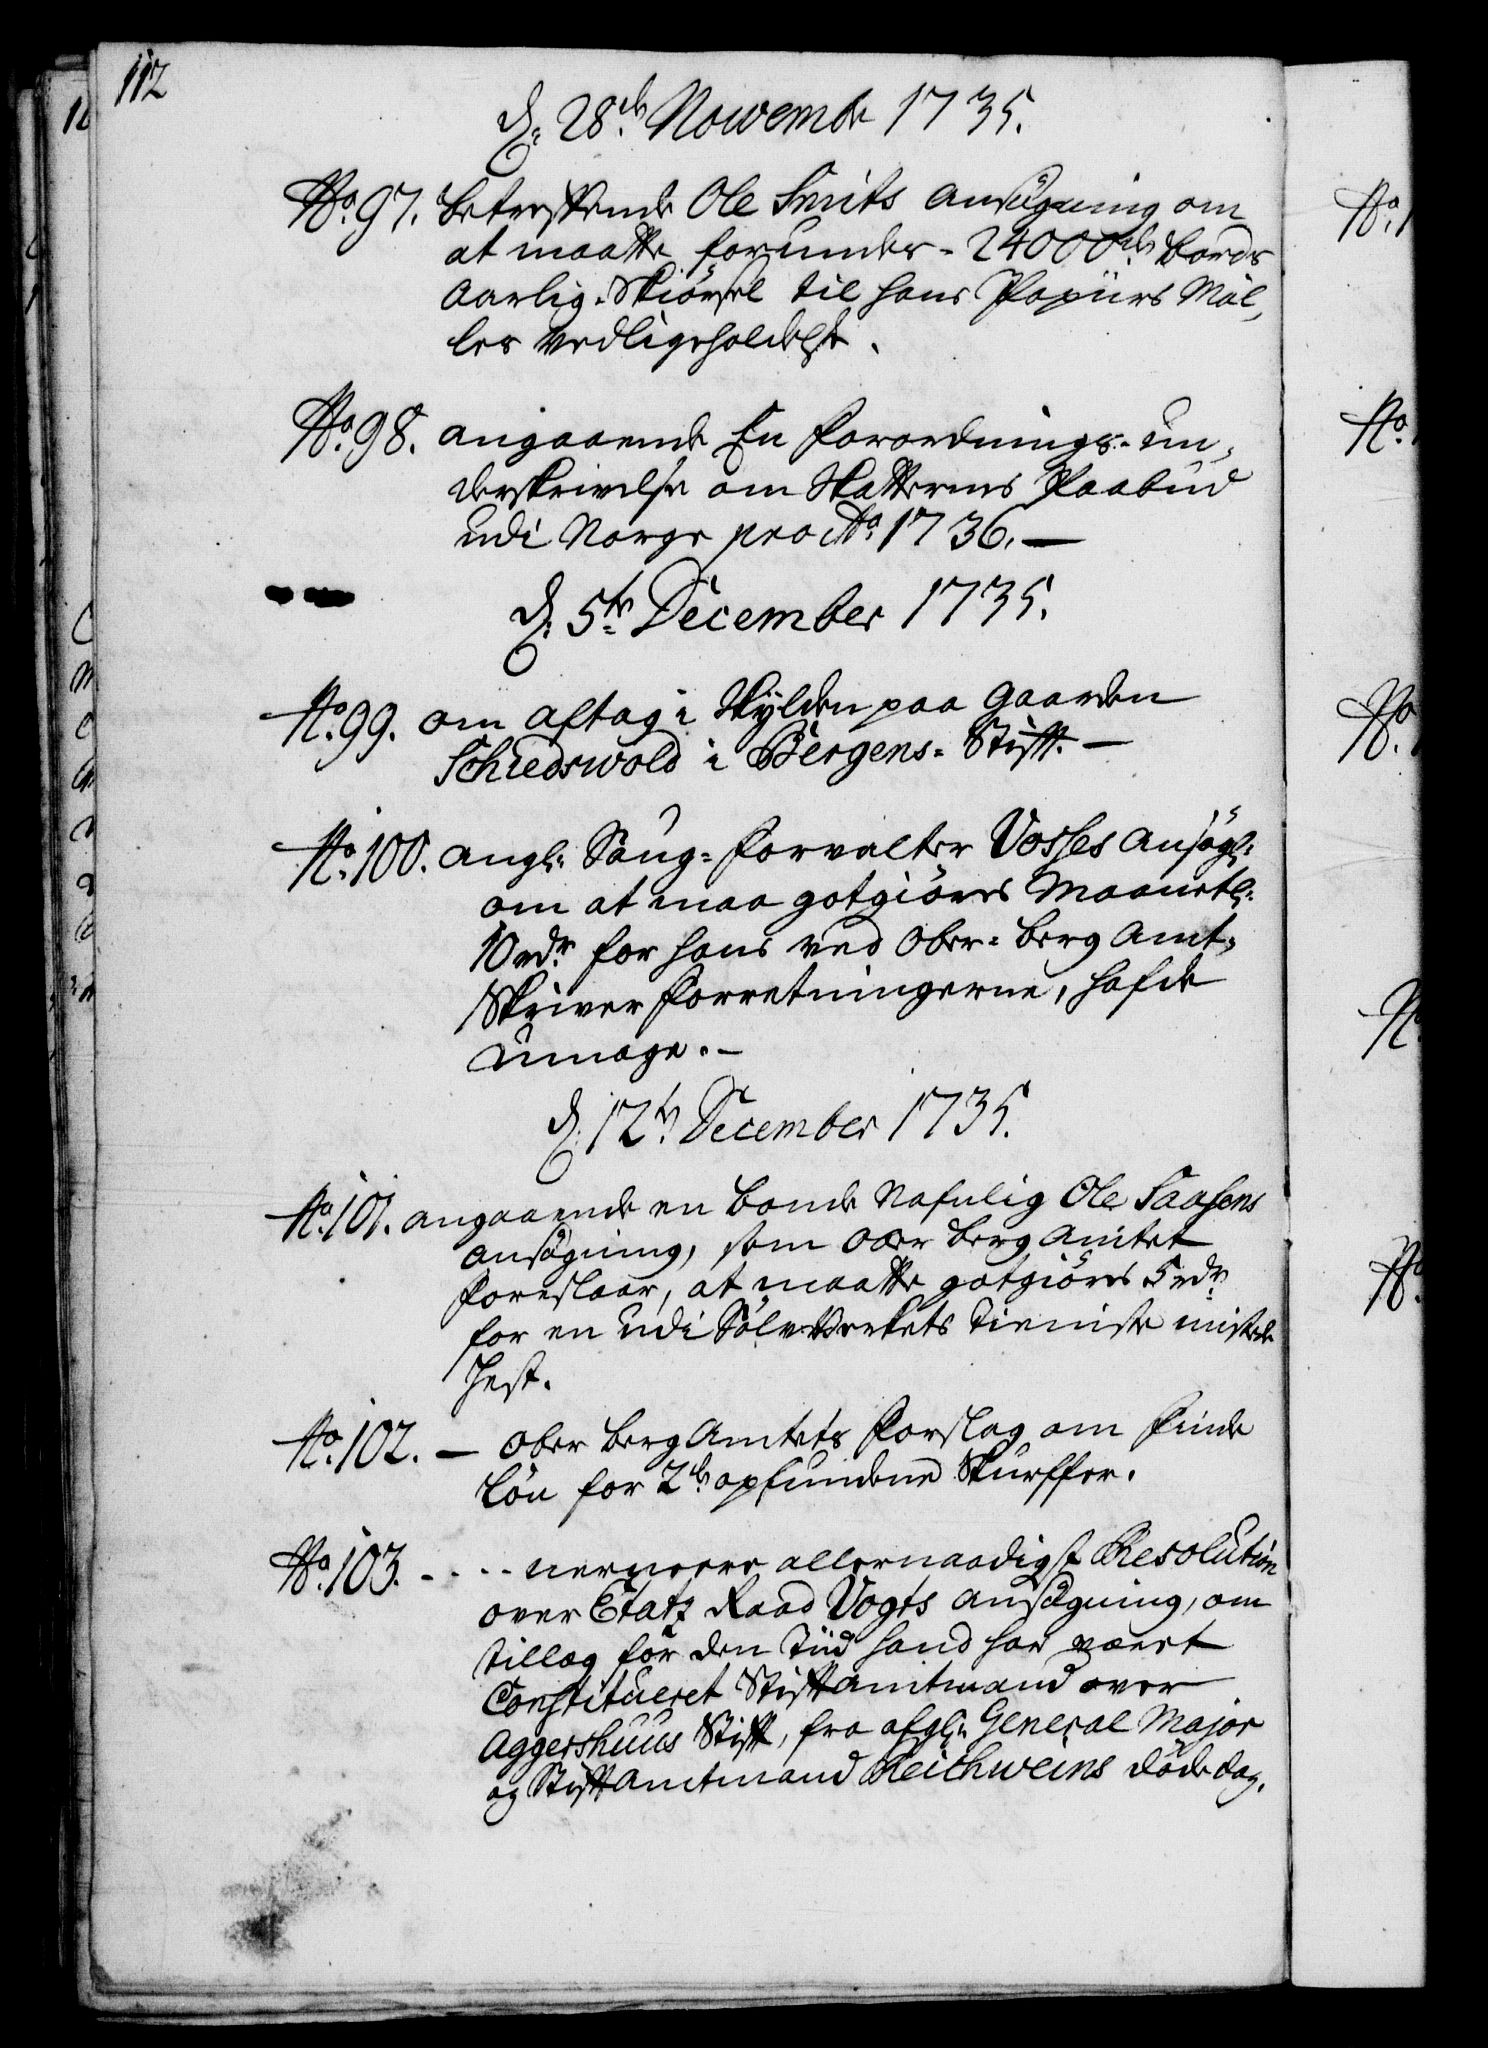 112
d: 28de Novembr 1735.
No. 97. betreffende Ole Smits ansögning om
at maatte forundes 24000de bords
aarlig Skiörsel til hans Papiirs Möl,
les vedligeholdelse.
No. 98. angaaende En Forordnings un,
derskrivelse om Skatternes Paabud
udi Norge pro Ao. 1736.
d: 5te December 1735.
No. 99. om aftag i Skylden paa Gaarden
i Bergens Stift.
No. 100. angl: Söug-forvalter Vosses ansögl:
om at maa gotgiöres Maanetl:
10 rdr for hans ved Ober-berg Amt,
Skriver Forretningerne, hafde
umage.
d: 12te December 1735.
No. 101. angaaende en bonde Nafnlig Ole Saasens
ansögning, som ober berg Amtet
foreslaar, at maatte gotgiöres 5 rdr
for en udi Sölvverkets tieniste mistede
Hest.
No. 102. — Ober berg Amtets Forslag om Finde
Lön for 2de opfundene Skurffer.
No. 103. .... nermere allernaadigst Resolution
over Etatz Raad Vogts ansögning, om
tillæg for den tiid hand har været
Constitueret Stiftamtmand over
Aggershuus Stift, fra afgl: General Major
og Stiftamtmand Reichweins dödedag.
No.
No.
No.
No.
No.